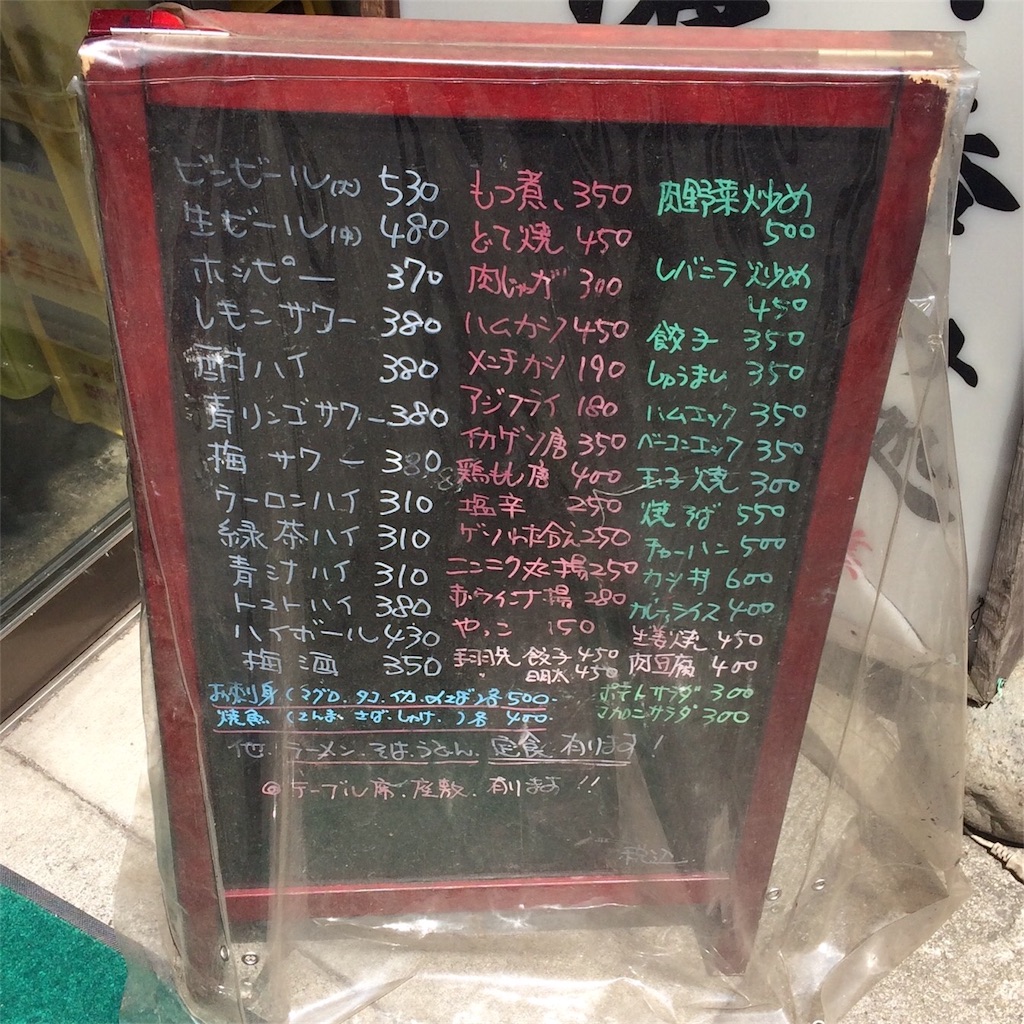 ビンビール(大) 530
生ビール(中) 480
ホッピー 370
レモンサワー 380
酎ハイ 380
青リンゴサワー 380
梅サワー 380
ウーロンハイ 310
緑茶ハイ 310
青汁ハイ 310
トマトハイ 380
ハイボール 430
梅酒 350
もつ煮、350
どて焼 450
肉じゃが 300
ハムカツ 450
メンチカツ 190
アジフライ 180
イカゲソ唐 350
鶏もも唐 400
塩辛 250
ゲソわさ和え 250
ニンニク丸揚 250
赤ウインナ揚 280
やっこ 150
手羽先 餃子 450
明太 450
肉野菜炒め
500
レバニラ炒め
450
餃子 350
しゅうまい 350
ハムエッグ 350
ベーコンエッグ 350
玉子焼 300
焼そば 550
チャーハン 500
カツ丼 600
カレーライス 400
生姜焼 450
肉豆腐 400
ポテトサラダ 300
マカロニサラダ 300
お刺身(マグロ、タコ、イカ、)各500
焼魚(さんま、さば、しゃけ、)各400
他、ラーメン、そば、うどん、定食、有ります!
◎テーブル席、座敷、有ります!!
税込
処